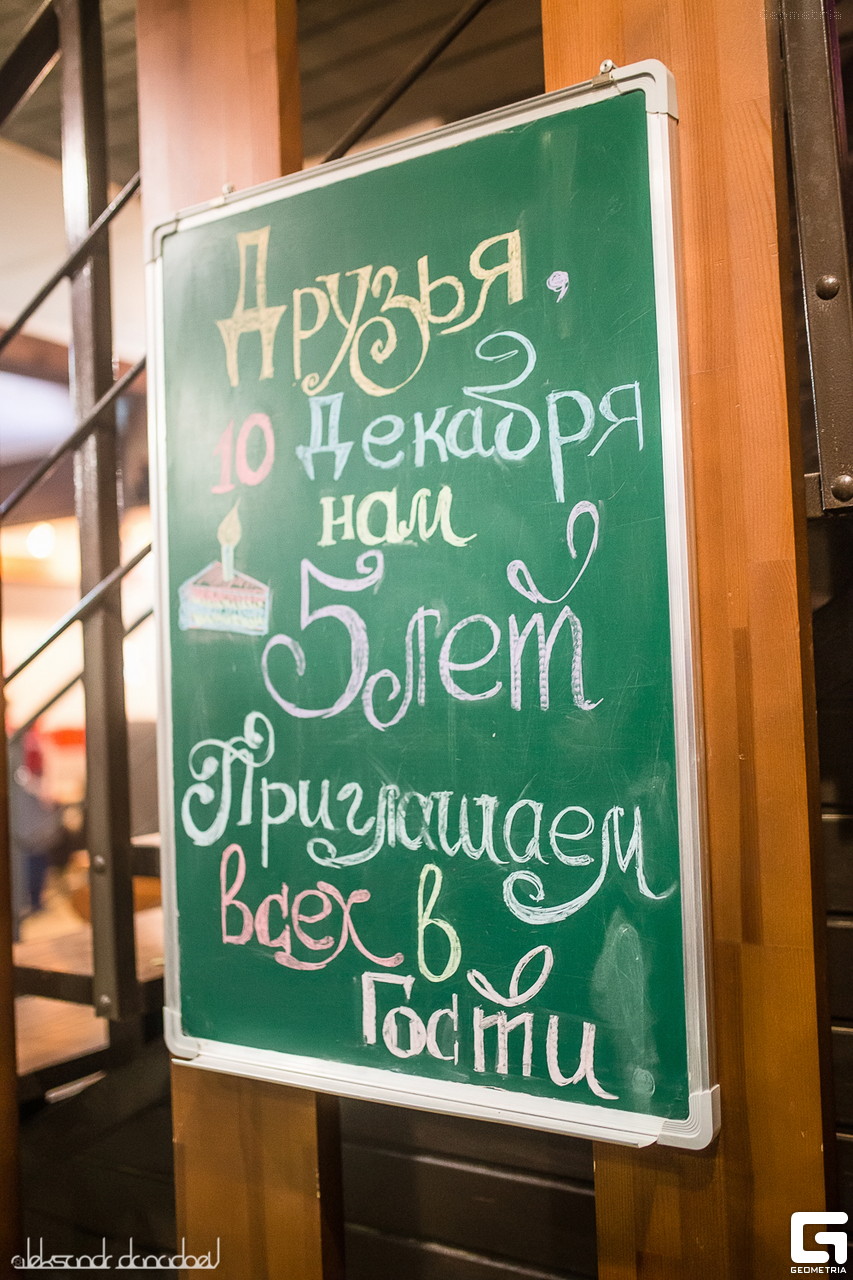 Geometria
Друзья,
10 Декабря
нам
5 лет
Приглашаем
всех в
Гости
GEOMETRIA